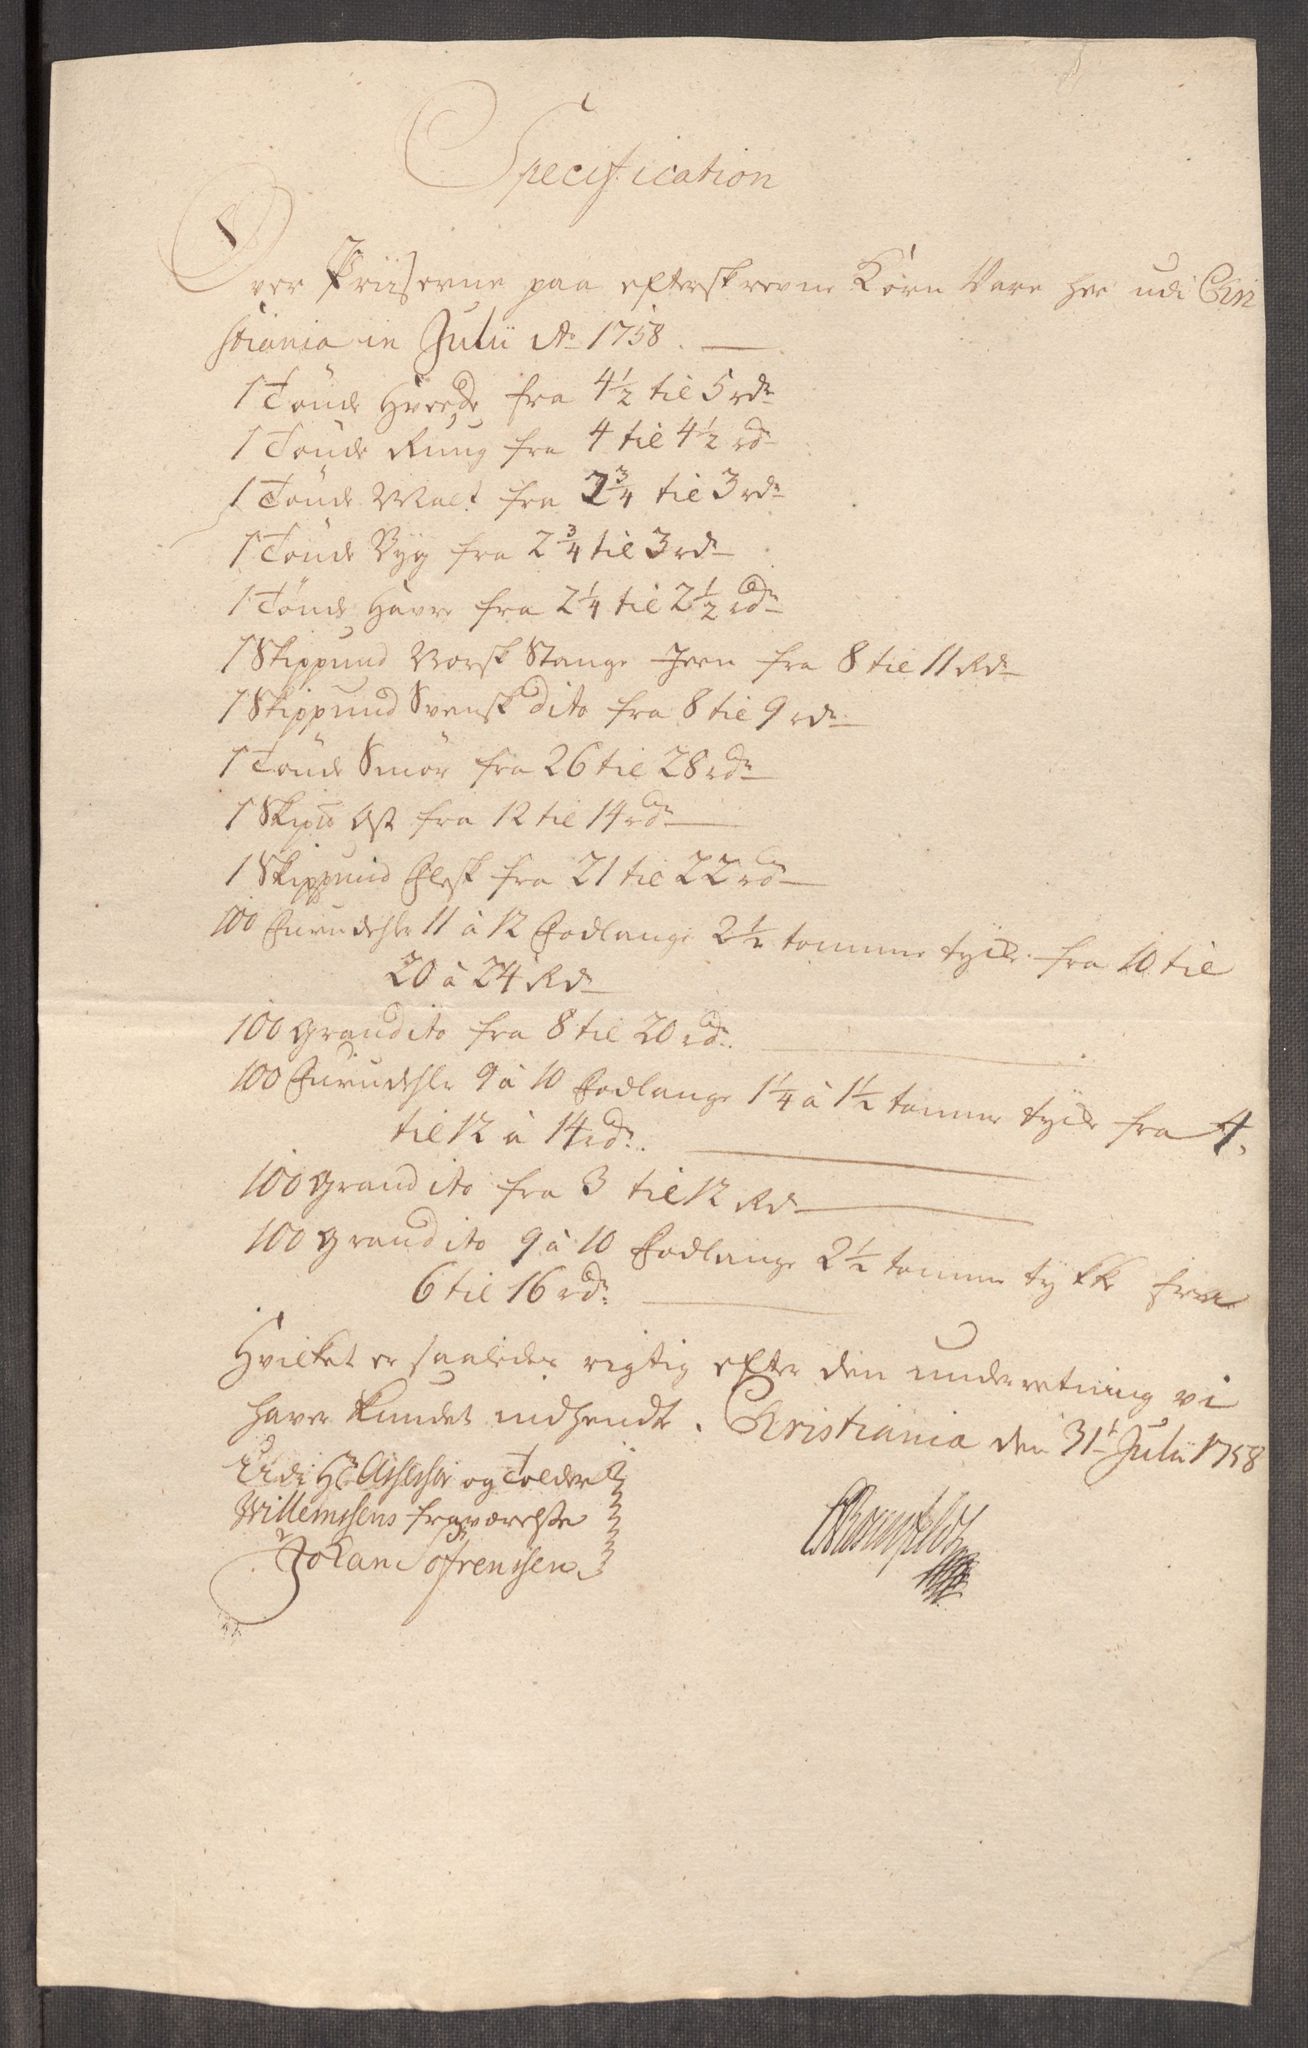 Specification
Over Priiserne paa efterskrevne Korn Vare her udi Chri
stiania in Julii Ao 1758.
1 Tönde Hveede fra 4 1/2 til 5 rdr
1 Tönde Rüug fra 4 til 4 1/2 rdr
1 Tönde Malt fra 2 3/4 til 3 rdr
1 Tönde Byg fra 2 3/4 til 3 rdr
1 Tönde Havre fra 2 1/4 til 2 1/2 rdr
1 Skippund Norsk Stange Jern fra 8 til 11 Rdr
1 Skippund Svensk dito fra 8 til 9 rdr
1 Tönde Smör fra 26 til 28 rdr
1 Skip℔ Ost fra 12 til 14 rdr
1 Skippund Flesk fra 21 til 22 rdr
100 Furudehler 11 à 12 Fodlange 2 1/2 tomme tycke fra 10 til
20 à 24 Rdr
100 Gran dito fra 8 til 20 rdr.
100 Furudehle 9 à 10 Fodlange 1 1/4 à 1 1/2 tomme tycke fra 4.
til 12 à 14 rdr.
100 Gran dito fra 3 til 12 Rdr
100 Gran dito 9 à 10 Fodlange 2 1/2 tomme tykke fra
6 til 16 rdr.
Hvilket er saaledes rigtig efter den underretning vi
haver kundet indhendte. Christiania den 31t Julii 1758
Udi Hr Assessor og Tolder
Willemssens fraværelse
Johan Sofrenssen